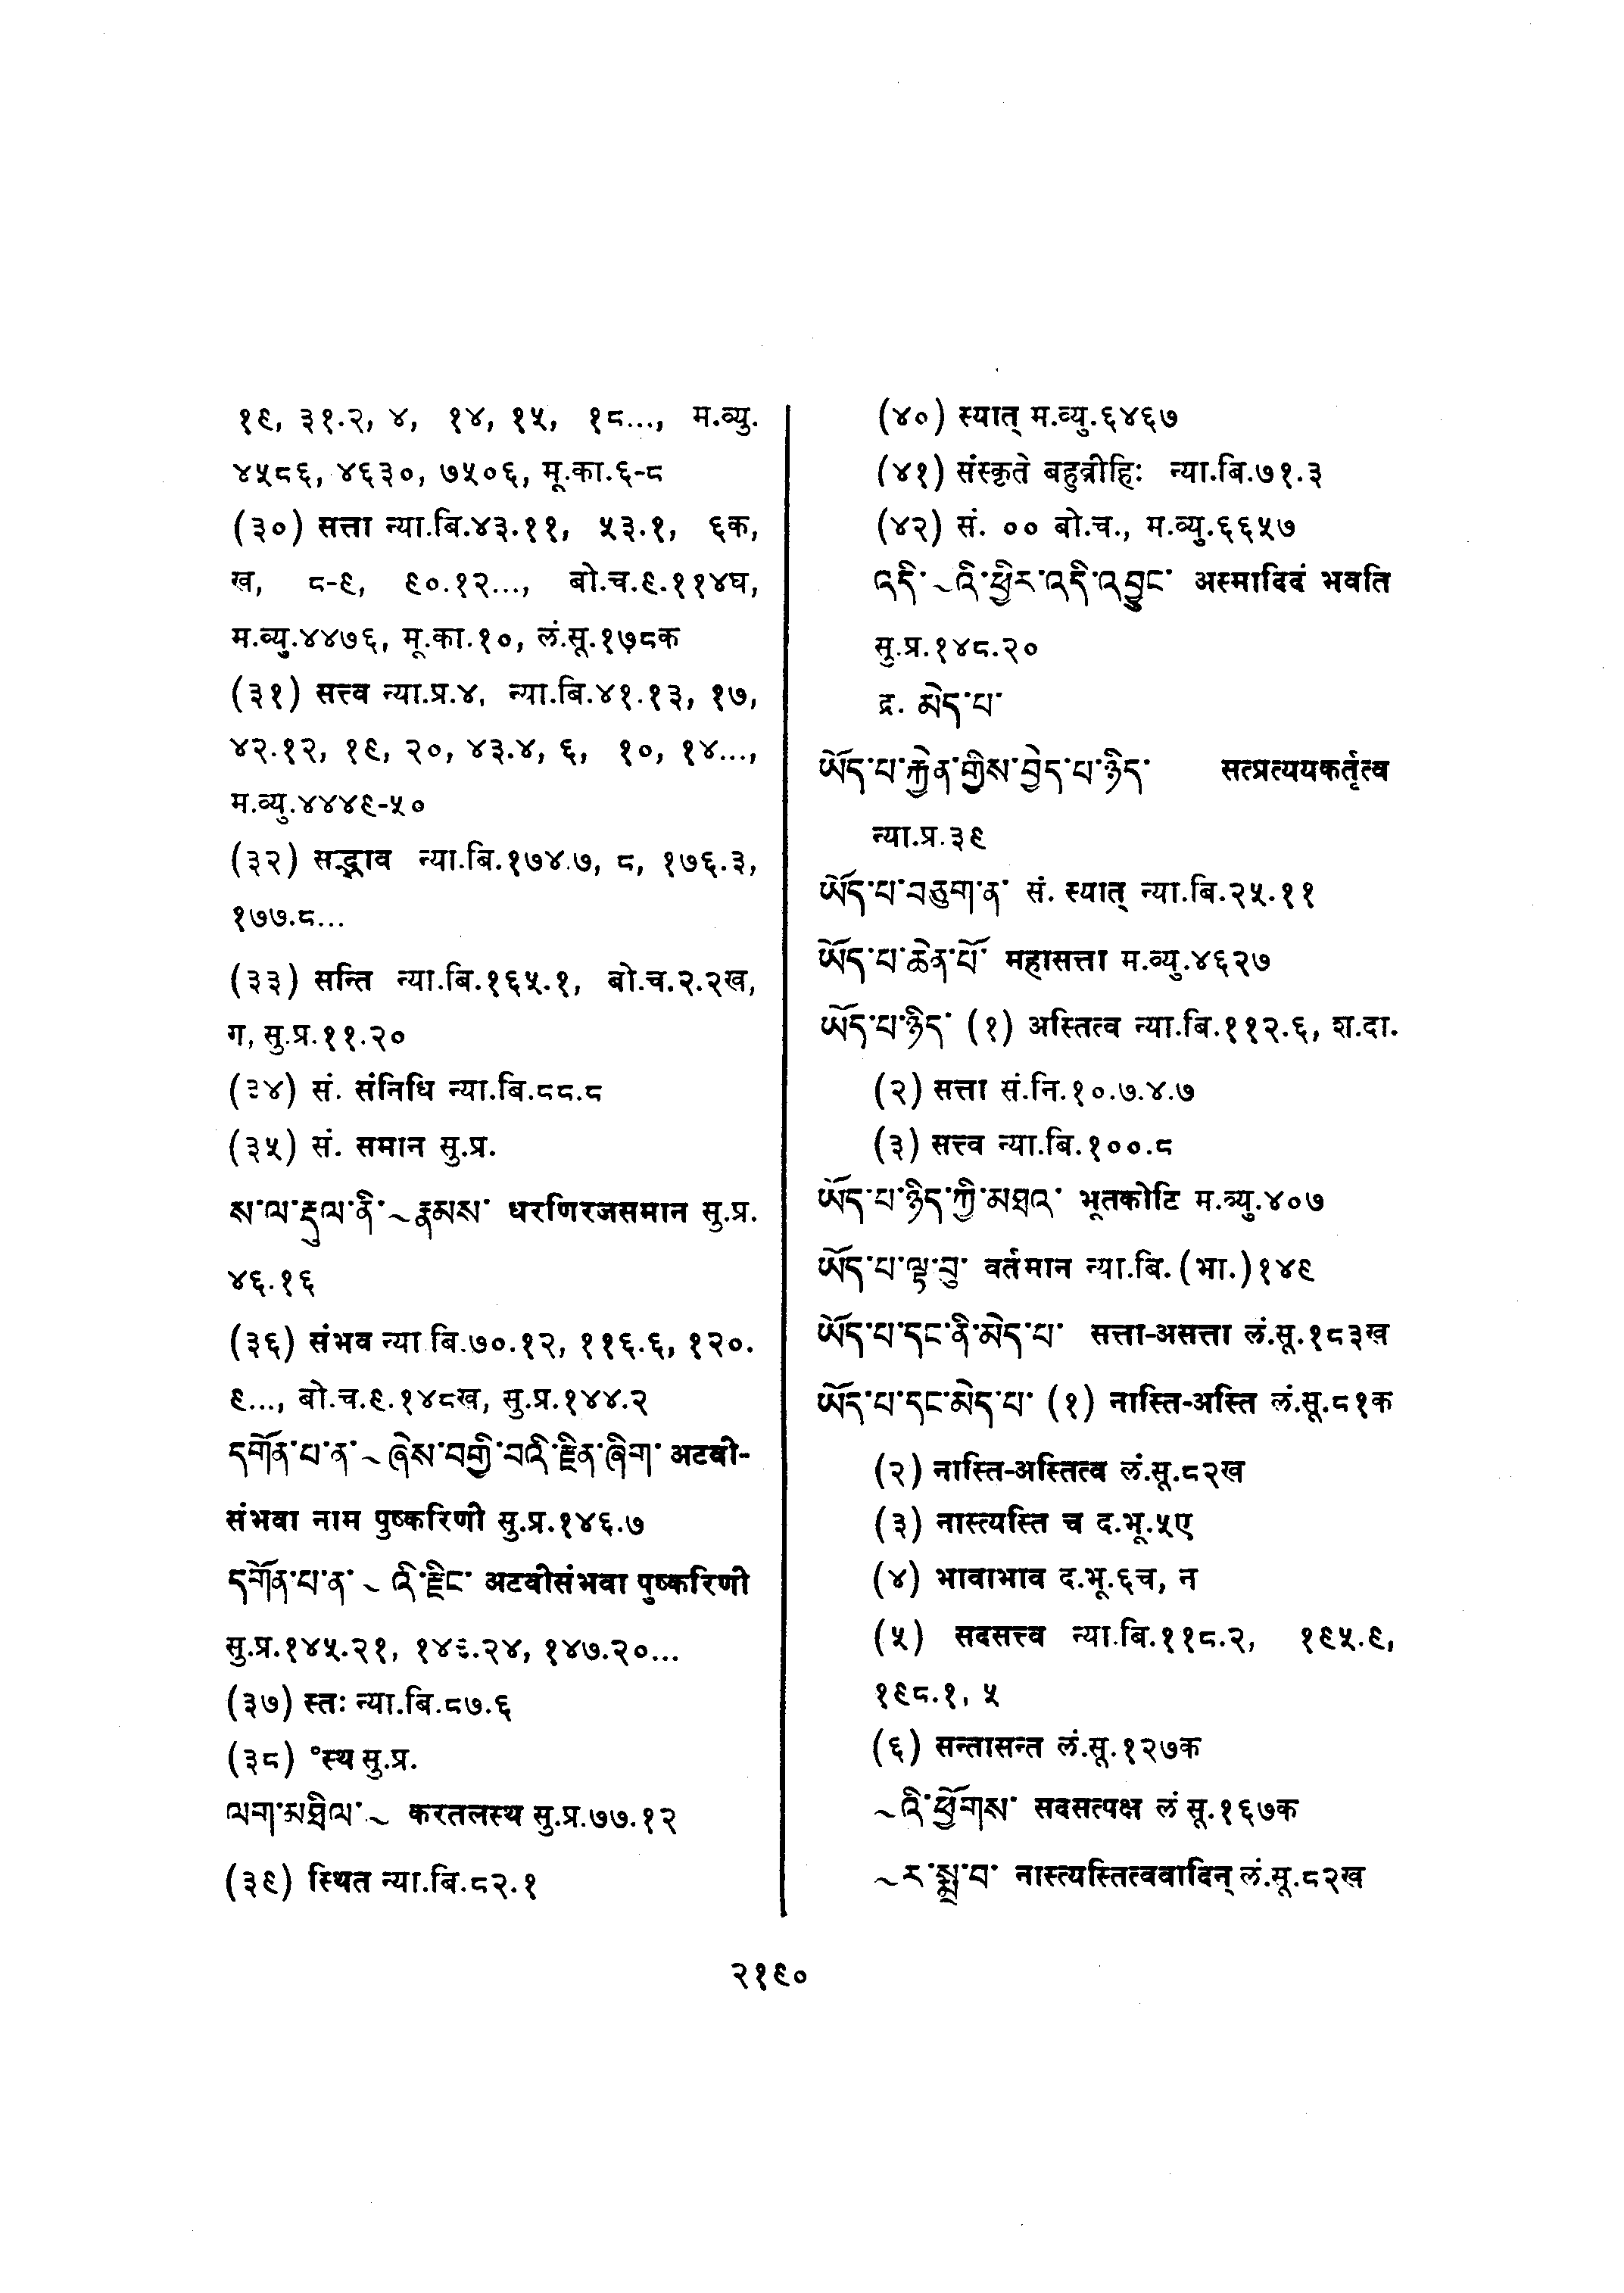 १९, ३१.२, ४, १४, १५, १८..., म.व्यु.
४५८६, ४६३०, ७५०६, मू.का.६-८
(३०) सत्ता न्या.बि.४३.११, ५३.१, ६क,
ख, ८-९, ९०.१२..., बो.च.९.११४घ,
म.व्यु.४४७६, मू.का.१०, लं.सू.१७८क
(३१) सत्त्व न्या.प्र.४, न्या.बि.४१.१३, १७,
४२.१२, १९, २०, ४३.४, ६, १०, १४...,
म.व्यु.४४४९-५०
(३२) सद्भाव न्या.बि.१७४.७, ८, १७६.३,
१७७.८...
(३३) सन्ति न्या.बि.१६५.१, बो.च.२.२ख,
ग, सु.प्र.११.२०
(३४) सं. संनिधि न्या.बि.८८.८
(३५) सं. समान सु.प्र.
ས་ལ་རྡུལ་ནི་~རྣམས་ धरणिरजसमान सु.प्र.
४६.१६
(३६) संभव न्या बि.७०.१२, ११६.६, १२०.
९..., बो.च.९.१४८ख, सु.प्र.१४४.२
དགོན་པ་ན་~ཞེས་བགྱི་བའི་རྫིན་ཞིག་ अटवी-
संभवा नाम पुष्करिणी सु.प्र.१४६.७
དགོན་པ་ན་~འི་རྫིང་ अटवीसंभवा पुष्करिणी
सु.प्र.१४५.२१, १४६.२४, १४७.२०...
(३७) स्तः न्या.बि.८७.६
(३८) °स्थ सु.प्र.
ལག་མཐིལ་~ करतलस्थ सु.प्र.७७.१२
(३९) स्थित न्या.बि.८२.१
(४०) स्यात् म.व्यु.६४६७
(४१) संस्कृते बहुव्रीहिः न्या.बि.७१.३
(४२) सं. ०० बो.च., म.व्यु.६६५७
འདི་~འི་ཕྱིར་འདི་འབྱུང་ अस्मादिदं भवति
सु.प्र.१४८.२०
द्र. མེད་པ་
ཡོད་པ་རྐྱེན་གྱིས་བྱེད་པ་ཉིད་ सत्प्रत्ययकर्तृत्व
न्या.प्र.३९
ཡོད་པ་བཅུག་ན་ सं. स्यात् न्या.बि.२५.११
ཡོད་པ་ཆེན་པོ་ महासत्ता म.व्यु.४६२७
ཡོད་པ་ཉིད་ (१) अस्तित्व न्या.बि.११२.६, श.दा.
(२) सत्ता सं.नि.१०.७.४.७
(३) सत्त्व न्या.बि.१००.८
ཡོད་པ་ཉིད་ཀྱི་མཐའ་ भूतकोटि म.व्यु.४०७
ཡོད་པ་ལྟ་བུ་ वर्तमान न्या.बि.(भा.)१४९
ཡོད་པ་དང་ནི་མེད་པ་ सत्ता-असत्ता लं.सू.१८३ख
ཡོད་པ་དང་མེད་པ་ (१) नास्ति-अस्ति लं.सू.८१क
(२) नास्ति-अस्तित्व लं.सू.८२ख
(३) नास्त्यस्ति च द.भू.५ए
(४) भावाभाव द.भू.६च, न
(५) सदसत्त्व न्या.बि.११८.२, १९५.९,
१९८.१, ५
(६) सन्तासन्त लं.सू.१२७क
~འི་ཕྱོགས་ सदसत्पक्ष लं सू.१६७क
~ར་སྨྲ་བ་ नास्त्यस्तित्ववादिन् लं.सू.८२ख
२१९०